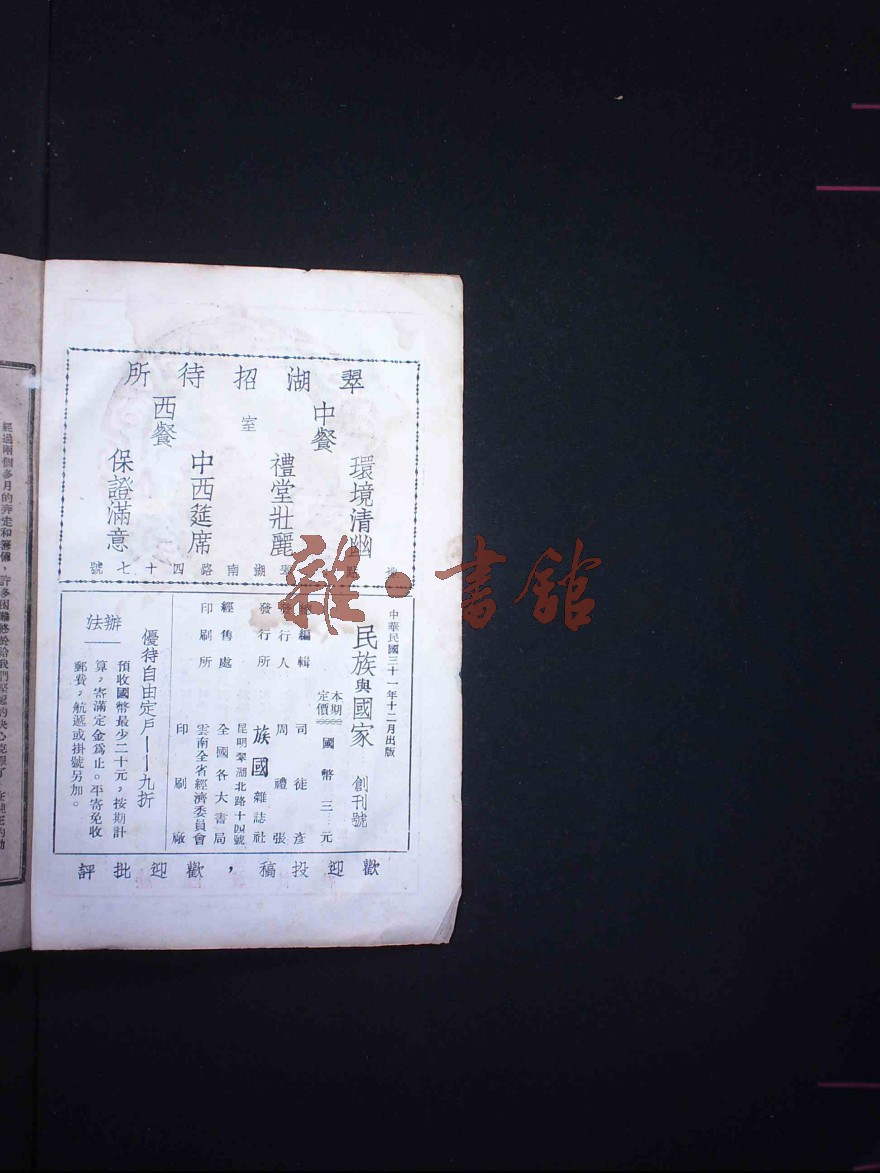 翠湖招待所
中餐
室
西餐
環境清幽
禮堂壯麗
中西筵席
保證滿意
翠湖南路四十七號
中華民國三十一年十二月出版
民族與國家 創刊號
本期定價 國幣三元
總編輯 司徒彥
發行人 周禮張
發行所 族國雜誌社
昆明翠湖北路十四號
經售處 全國各大書局
印刷所 雲南全省經濟委員會
印刷廠
優待自由定戶——九折
辦法
預收國幣最少二十元,按期計
算,寄滿定金為止。平寄免收
郵費,航遞或掛號另加。
歡迎投稿,歡迎批評
雜·書館
經過兩個多月的奔走和籌備,許多困難終於給我們堅忍的決心克服了